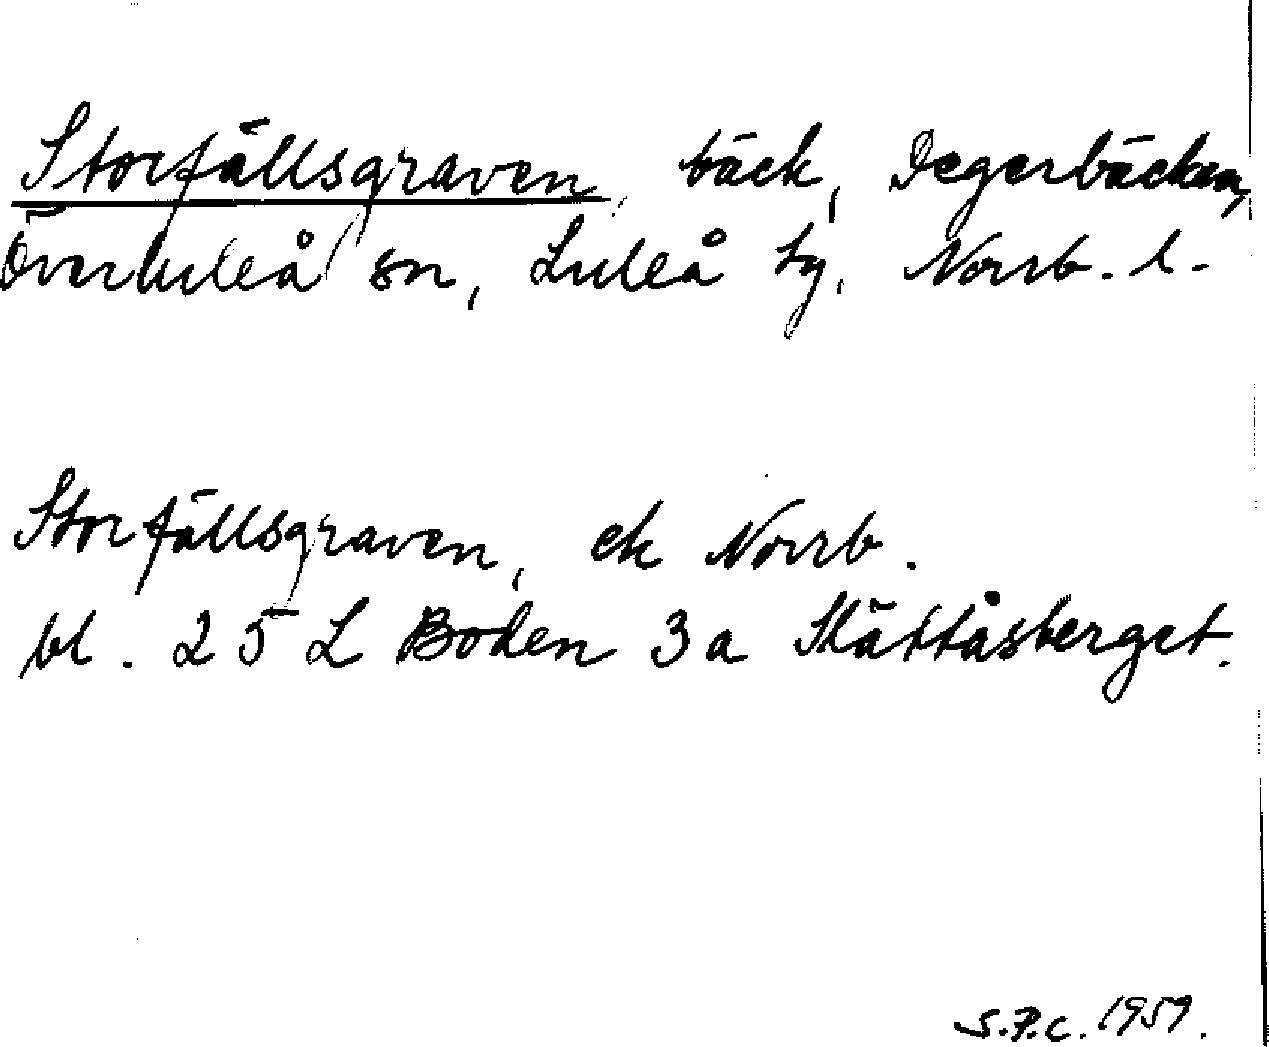 Storfällsgraven, bäck, Degerbäcken,
Överluleå sn, Luleå tg, Norrb. l.
Storfällsgraven, ek Norrb.
bl. 25 L Boden 3a Slättåsberget.
S.P.C. 1959.